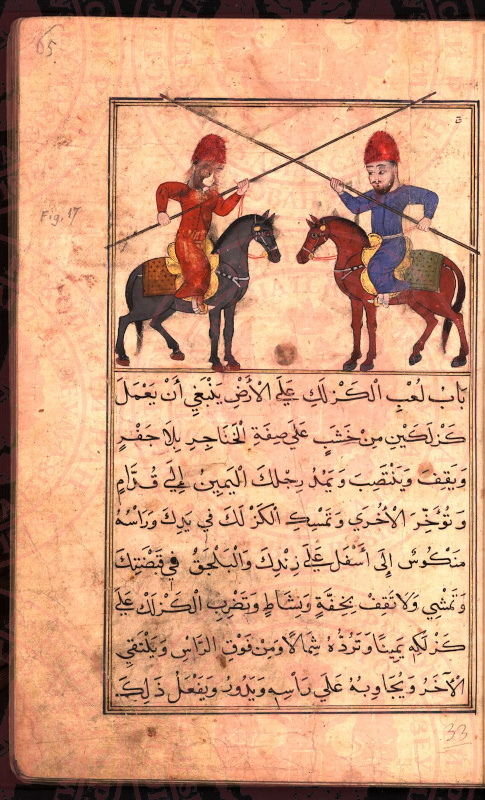 65
Fig. 17
باب لعب الكَزْلَك عَلَي الأَرْضِ يَنْبَغِي أَنْ يَعْمَلَ
كَزْلَكَيْنِ مِنْ خَشَبٍ عَلَى صِفَةِ الْخَنَاجِرِ بِلَا جَفْرٍ
وَيَقِفَ وَيَنْتَصِبَ وَيَمُدُّ رِجْلَكَ الْيَمِينُ إِلَي قُدَّامٍ
وَتُؤَخِّرَ الأُخْرَي وَتَمْسِكِ الكَزْلَكَ فِي يَدِكَ وَرَأسُهُ
مَنكُوسٌ إِلَى أَسْفَلِ عَلَي زَنْدِكَ وَالْبَلْجَقُ فِي قَبْضَتِكَ
وَتَمْشِي وَلَا تَقِفْ بِخِفَّةٍ وَنِشَاطٍ وَتَضْرِبِ الكَزْلَكْ عَلَي
كَزْلَكِهِ يَمِينًا وَتَرُدُّهُ شمَالًا وَمِنْ فَوْقِ الرَّاسِ وَيَلْتَقِي
الآخَرُ وَيُجَاوِبُهُ عَلَي رَأسِهِ وَيَدُورُ وَيَفْعَلُ ذَلِكَ
33